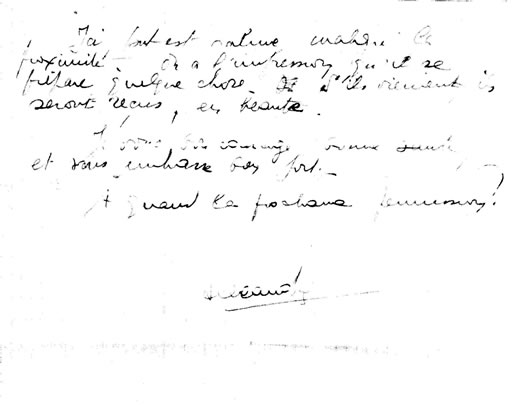 Ici tout est calme malgré la
proximité. On a l'impression qu'il se
prépare quelque chose. S'ils viennent ils
seront reçus, en beauté.
bon courage bonne santé
et vous embrasse bien fort.
A quand la prochaine permission?